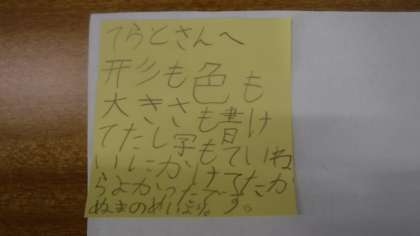 てらとさんへ
形も色も
大きさも書け
てたし字もていね
いにかけてたか
らよかったです。
ぬきのめいより。